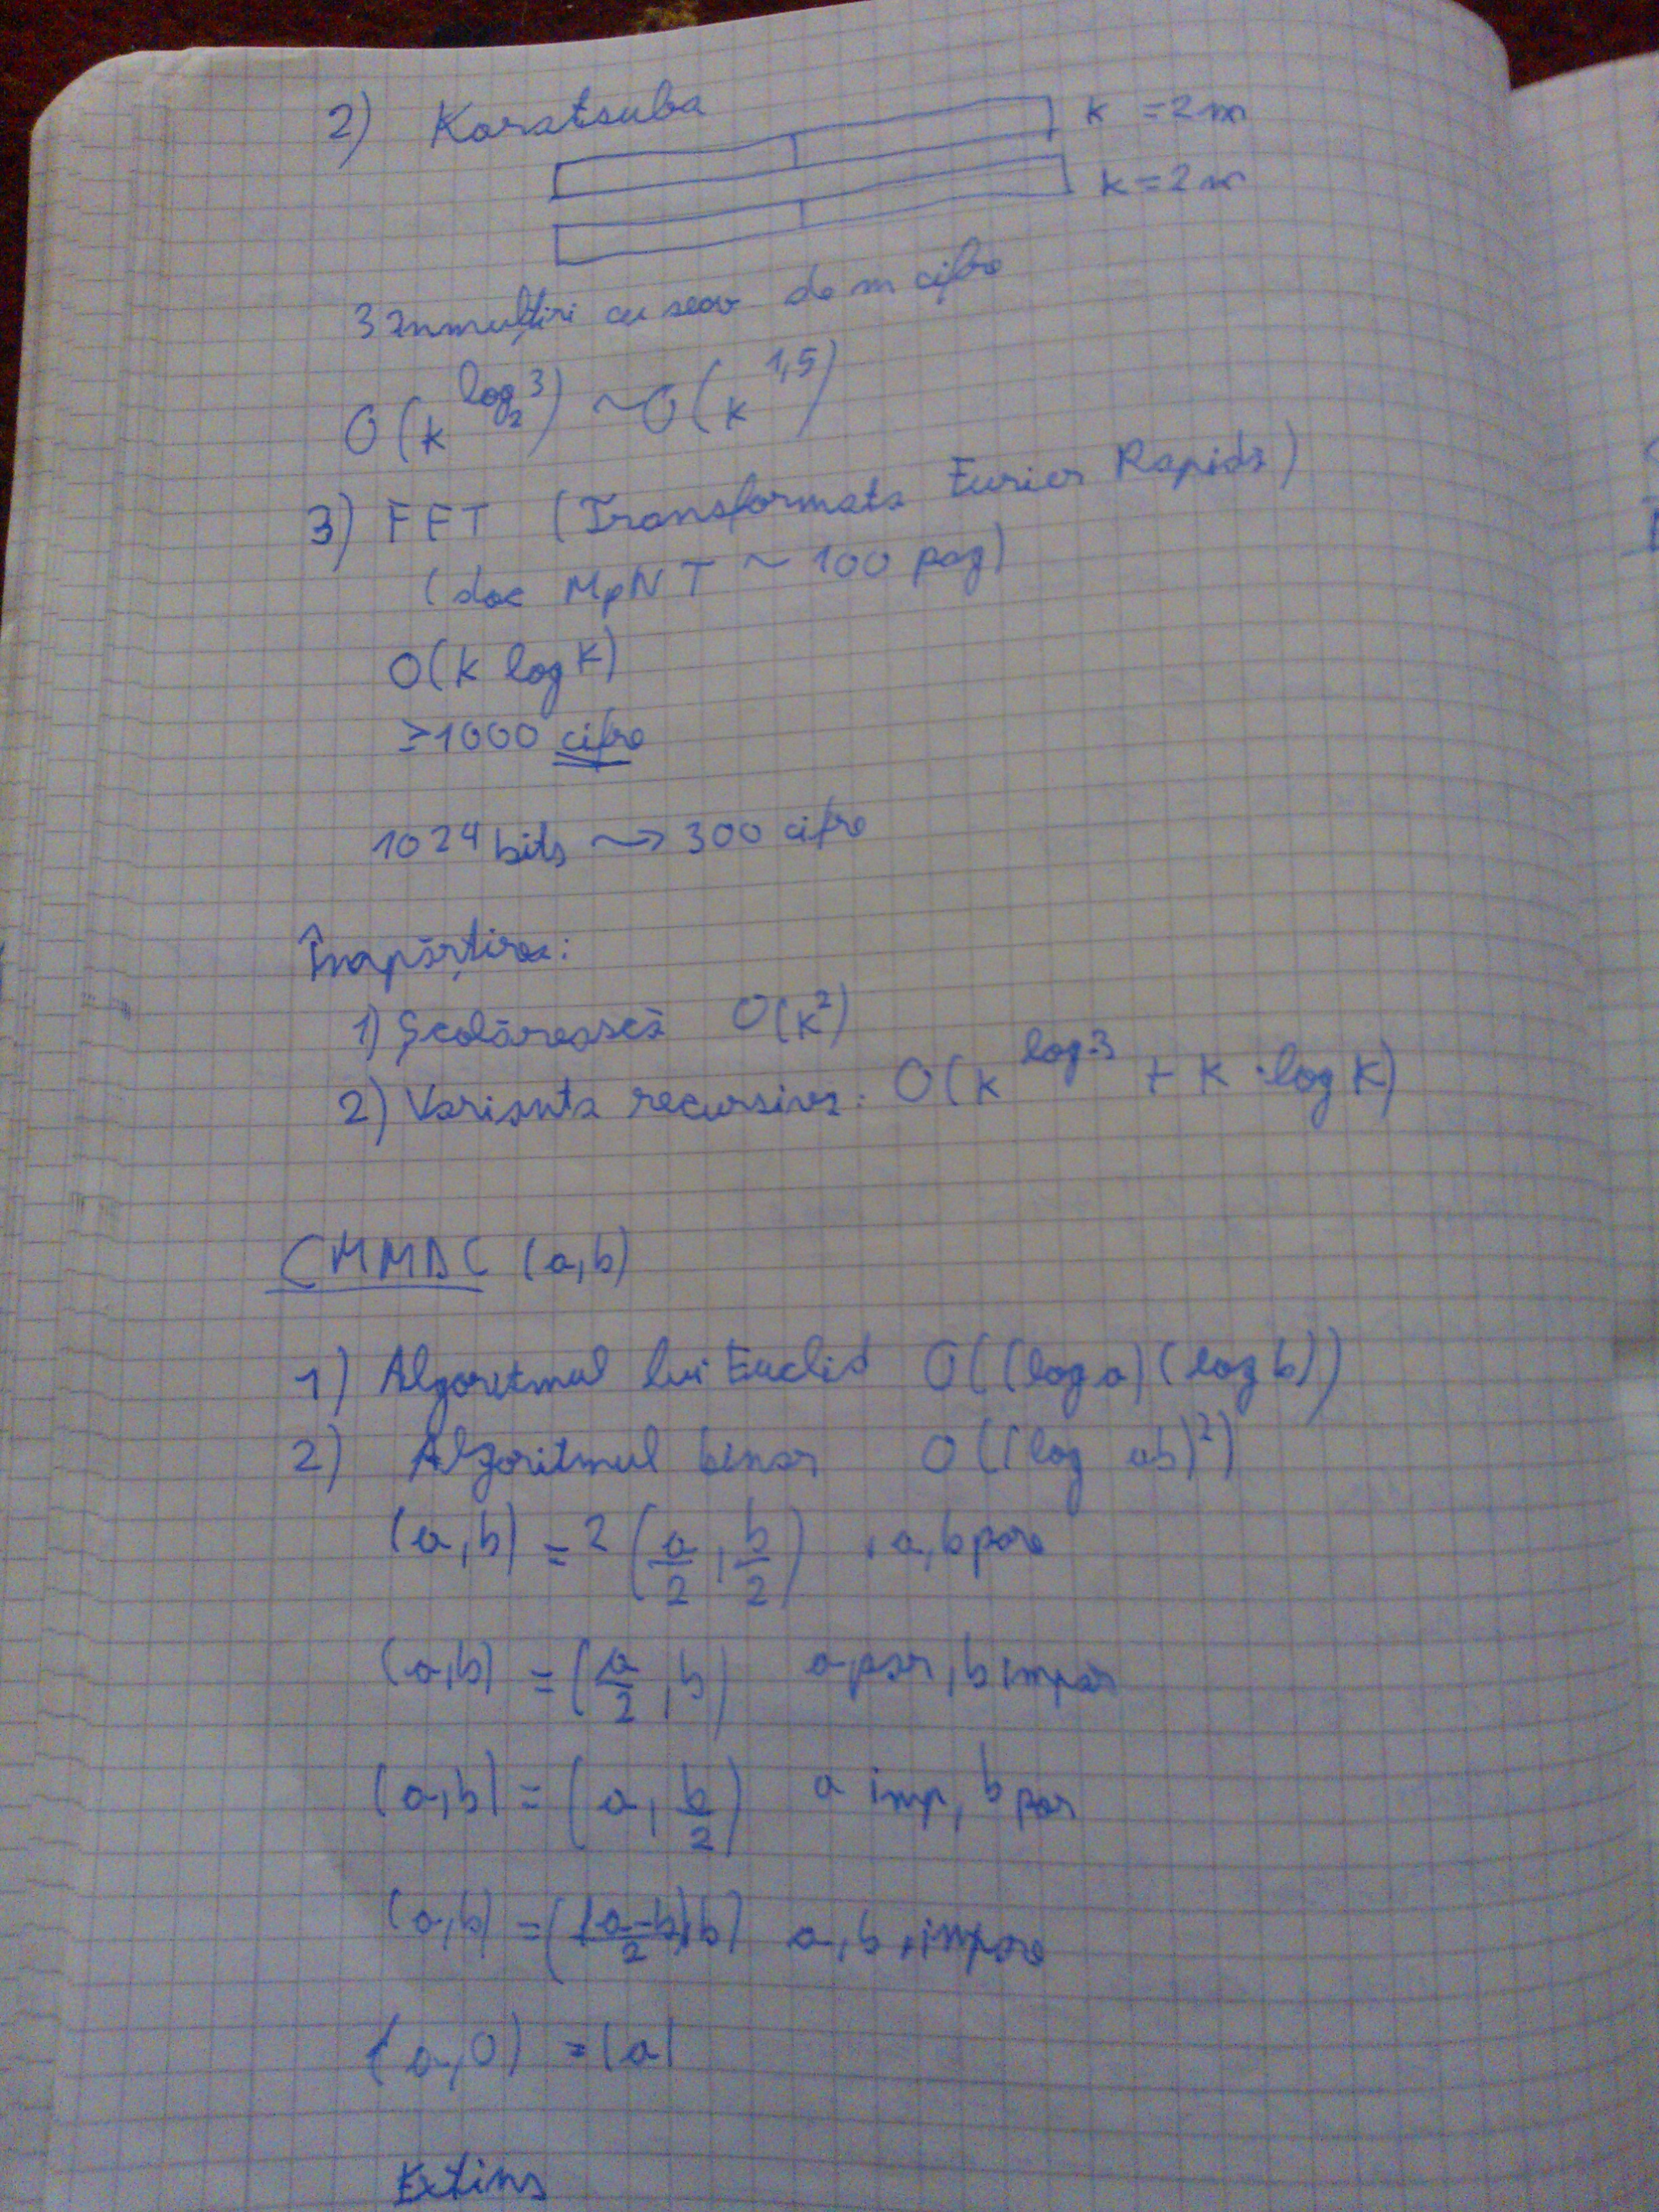 2) Karatsuba
k = 2m
k = 2m
3 înmulțiri cu de m cifre
O(k^{log_2 3}) ~ O(k^{1,5})
3) FFT (Transformata Furier Rapidă)
(doc MpNT ~ 100 pag)
O(k log k)
≥1000 cifre
1024 bits ⇝ 300 cifre
Înapărțirea:
1) Școlărească O(k^2)
2) Varianta recursivă: O(k^{log 3} + k · log k)
CMMDC (a,b)
1) Algoretmul lui Euclid O((log a)(log b))
2) Algoritmul binar O((log ab)^2)
(a,b) = 2(a/2, b/2) , a,b pare
(a,b) = (a/2, b) a par, b impar
(a,b) = (a, b/2) a imp, b par
(a,b) = (|a-b|/2, b) a,b impare
(a,0) = |a|
Extins